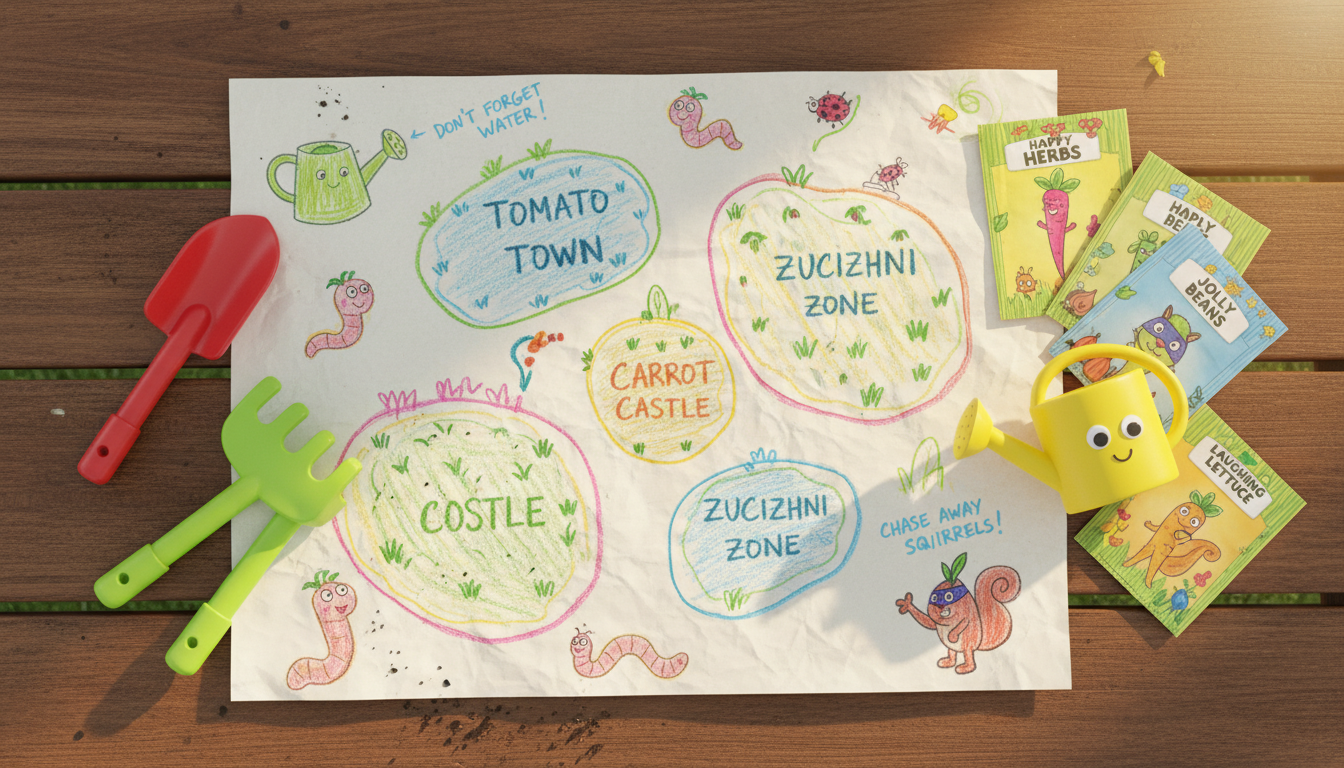 DON'T FORGET
WATER!
TOMATO
TOWN
ZUCIZHNI
ZONE
CARROT
CASTLE
COSTLE
ZUCIZHNI
ZONE
CHASE AWAY
SQIIRRELS!
HAPPY
HERBS
JOLLY
BEANS
LAUGHING
LETTUCE